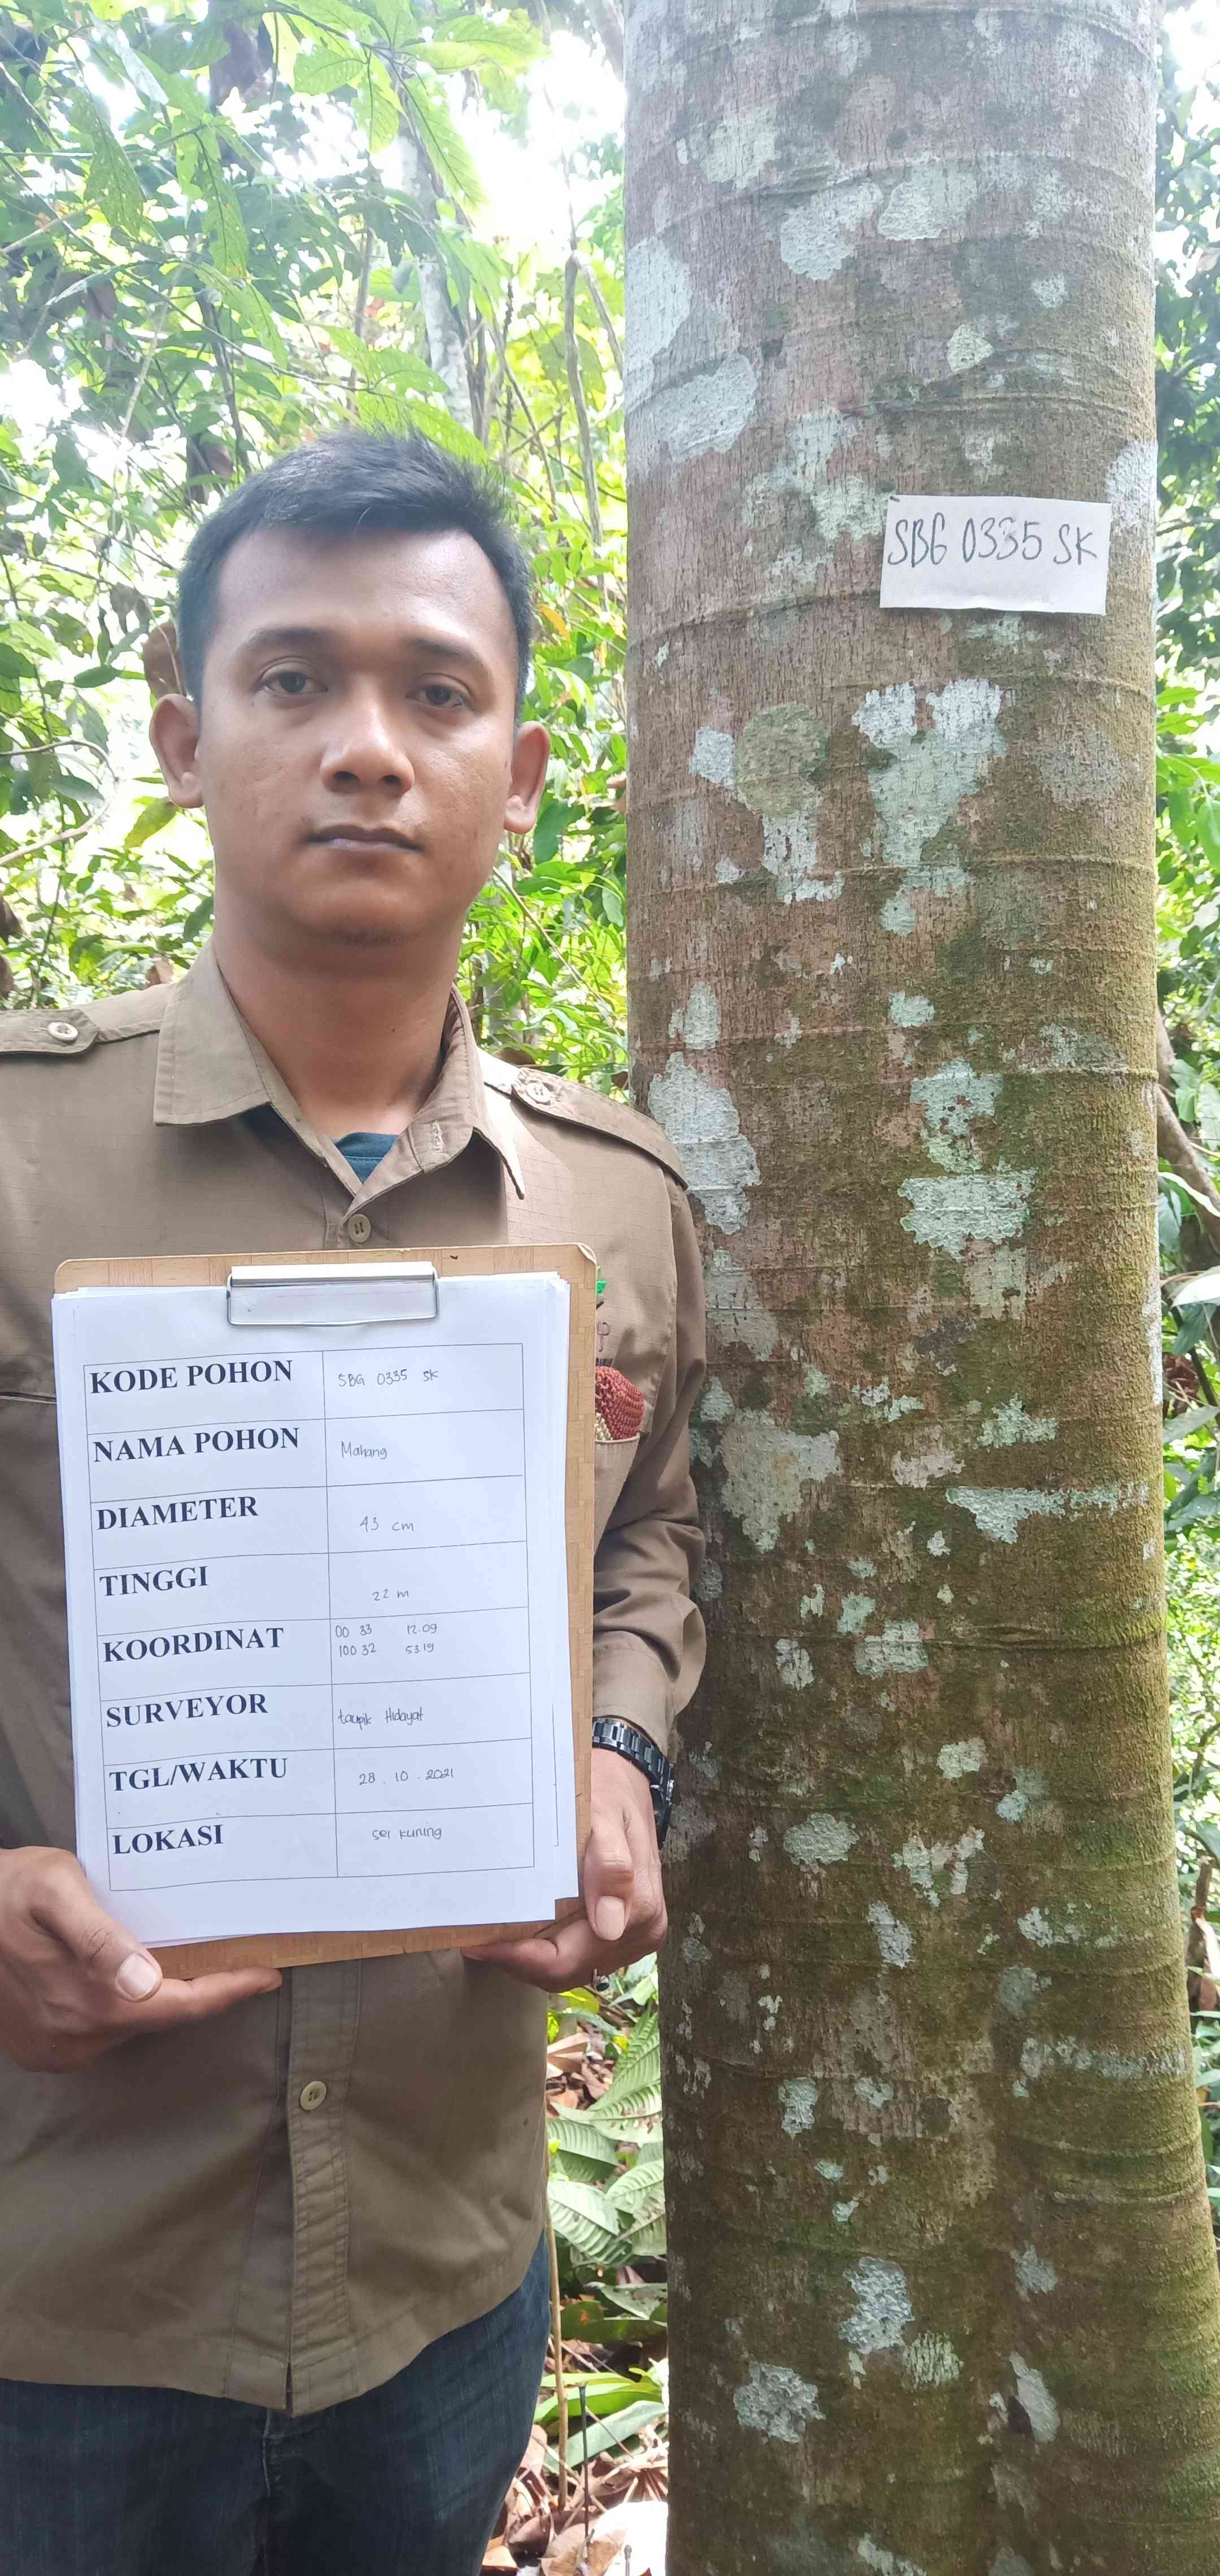 SBG 0335 SK
KODE POHON SBG 0335 SK
NAMA POHON Mahang
DIAMETER 43 cm
TINGGI 22 m
KOORDINAT 00 33 12.09
100 32 53.19
SURVEYOR taupik Hidayat
TGL/WAKTU 28 . 10 . 2021
LOKASI sei kuning